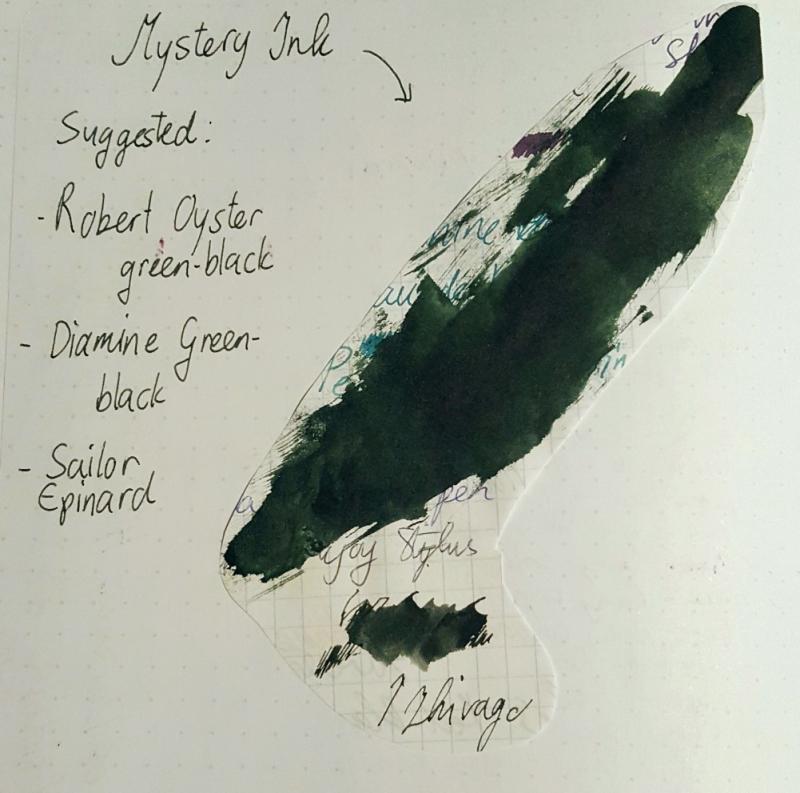 Mystery Ink
Suggested:
- Robert Oyster
green-black
- Diamine Green-
black
- Sailor
Epinard
in
pen
Stylus
↑ Zhivago